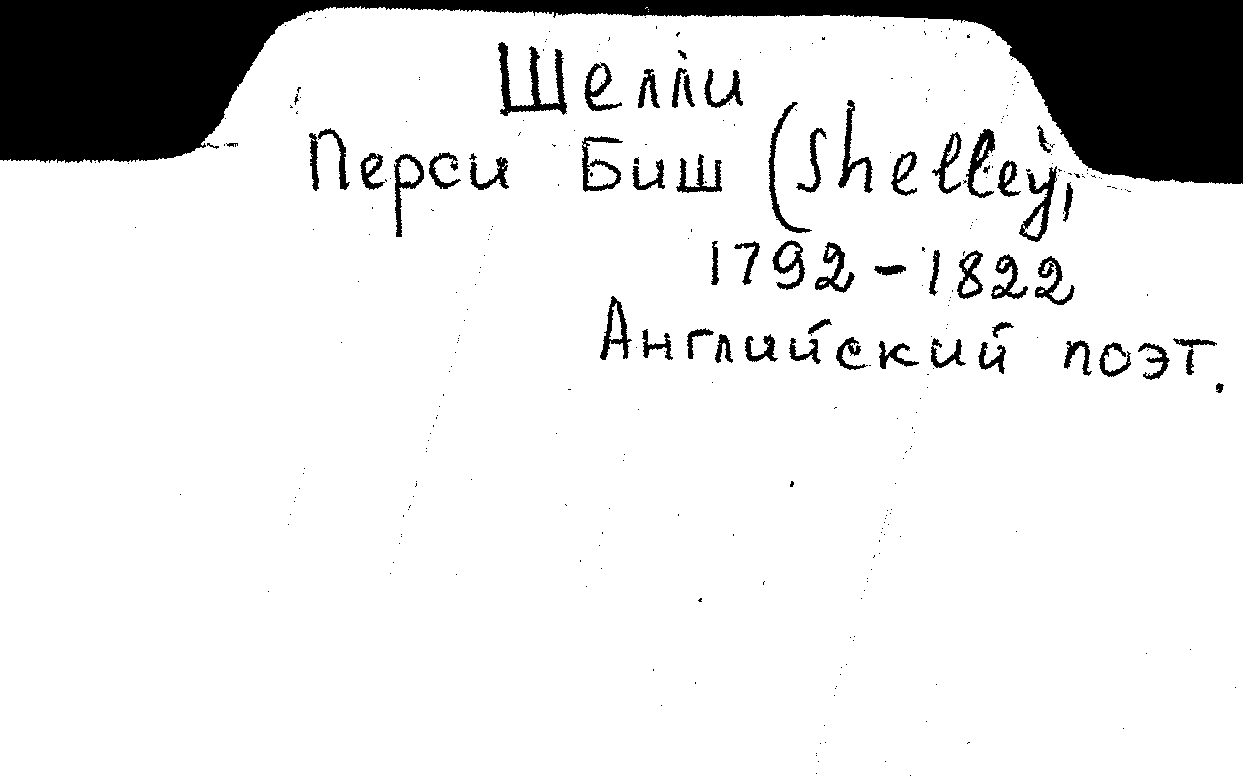 Шелли
Перси Биш (Shelley,
1792-1822
Английский поэт.